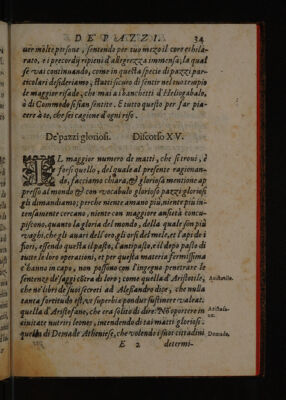 DE PAZZI. 34
uer molte persone, sentendo per tuo mezo il core exhila-
rato, e i precordij ripieni d'allegrezza immensa; la qual
se vai continuando, come in questa specie di pazzi par-
ticolari desideriamo, statti sicuro di sentir nel tuo tempio
le maggior risade, che mai a i banchetti d'Heliogabalo,
ò di Commodo si sian sentite. E tutto questo per far pia-
cere à te, che sei cagione d'ogni riso.
De' pazzi gloriosi. Discorso XV.
IL maggior numero de matti, che si troui, è
forsi quello, del quale al presente ragionan-
do, facciamo chiara, & gloriosa mentione ap
presso al mondo & con vocabulo glorioso pazzi gloriosi
gli dimandiamo; perche niente amano più, niente più in-
tensamente cercano, niente con maggiore ansietà concu-
piscono, quanto la gloria del mondo, della quale son più
vaghi, che gli auari dell'oro, gli orsi del mele, et l'api de i
fiori, essendo questa il pasto, l'antipasto, e il dopo pasto di
tutte le loro operationi, et per questa materia fermissima
c'hanno in capo, non possono con l'ingegno penetrare le
sentenze di saggi cōtra di loro; come quella d'Aristotile,
che nè libri de suoi secreti ad Alessandro dice, che nulla
tanta fortitudo est, vt superbiæ pondus sustinere valeat:
quella d'Aristofane, che era solito di dire: Nō oportere in
ciuitate nutriri leones, intendendo di tai matti gloriosi:
quella di Demade Atheniese, che volendo i suoi cittadini
Aristotile.
Aristofa-
ne.
Demade.
E 2 determi-